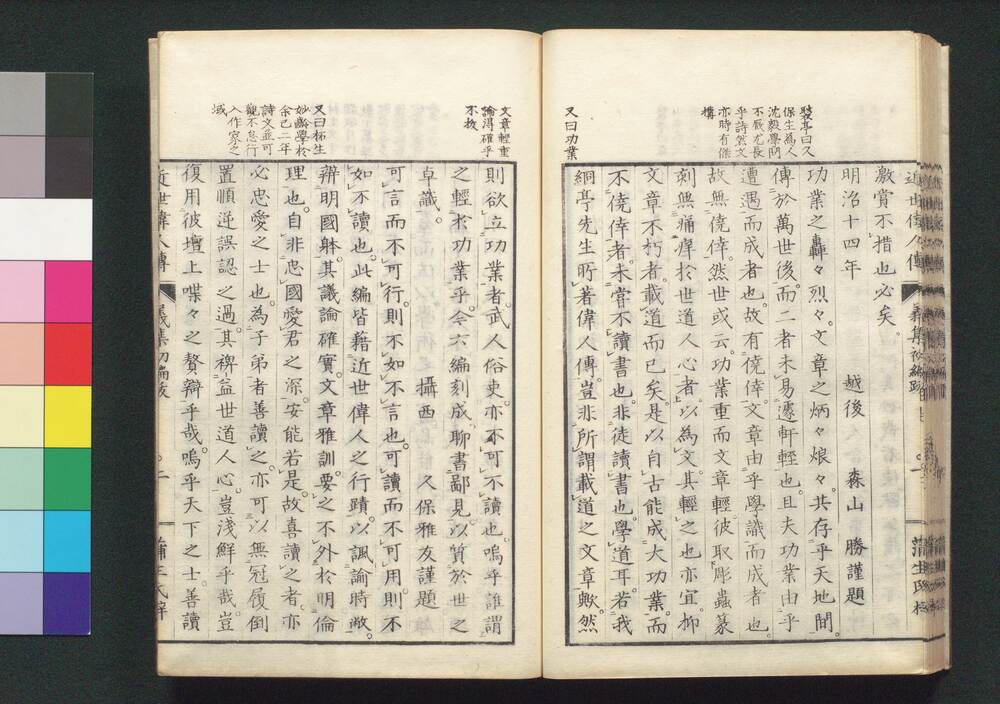 激賞不措也必矣。
明治十四年　越後　森山　勝謹題
功業之轟々烈々。文章之炳々烺々。共存乎天地間。
傳於萬世後。而二者未易遽軒輊也。且夫功業由乎
遭遇而成者也。故有僥倖。文章由乎學識而成者也。
故無僥倖。然世或云。功業重而文章輕。彼取彫蟲篆
刻無痛痒於世道人心者。以為文。其輕之也亦宜。抑
文章不朽者。載道而已矣。是以自古能成大功業。而
不僥倖者。未嘗不讀書也。非徒讀書也。學道耳。若我
絅亭先生所著偉人傳。豈非所謂載道之文章歟。然
裝亭曰又
保生為人
沈毅學問
不厭尤長
乎詩然文
亦時有傑
構
又曰功業
文章輕重
論得確乎
不拔
則欲立功業者。武人俗吏。亦不可不讀也。嗚乎誰謂
之輕於功業乎。今六編刻成。聊書鄙見。以質於世之
卓識。　攝西　久保雅友謹題
可言而不可行。則不如不言也。可讀而不可用。則不
如不讀也。此編皆藉近世偉人之行蹟。以諷諭時敝。
辨明國躰。其議論確實。文章雅訓。要之不外於明倫
理也。自非忠國愛君之深。安能若是。故喜讀之者。亦
必忠愛之士也。為子弟者善讀之。亦可以無冠履倒
置順逆誤認之過。其裨益世道人心。豈淺鮮乎哉。豈
復用彼壇上喋々之贅辯乎哉。嗚乎天下之士。善讀
又曰柘生
妙齡學於
余已二年
詩文並可
觀不怠行
入作家之
域
近世偉人傳　義集初編跋　二　蒲生氏梓